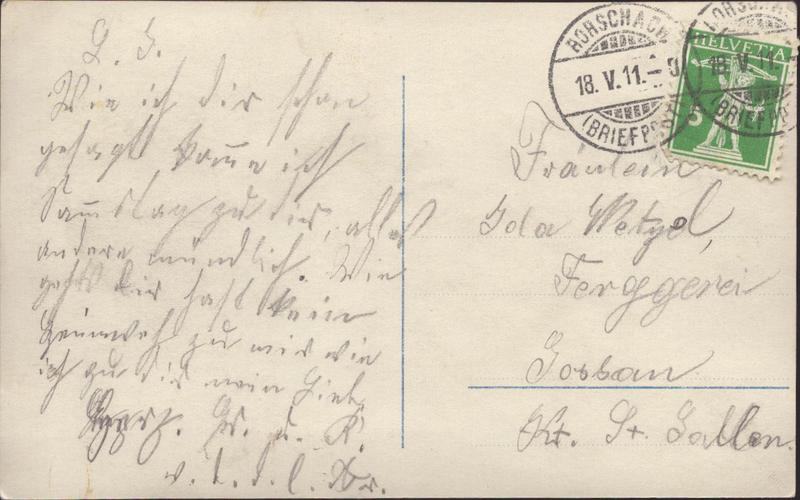 L. J.
Wie ich dir schon
gesagt komme ich
Samstag zu dir, alles
andere mündlich. Wie
geht's dir hast kein
Heimweh zu mir wie
ich zu dir mein Lieb.
Herz. Gr. u. K.
v. d. l.
RORSCHACH
18. V. 11.
(BRIEFPOST)
HELVETIA
5
RORSCHACH
18. V. 11.
(BRIEFPOST)
Fräulein
Ida Wetzel,
Ferggerei
Gossau
Kt. St. Gallen.